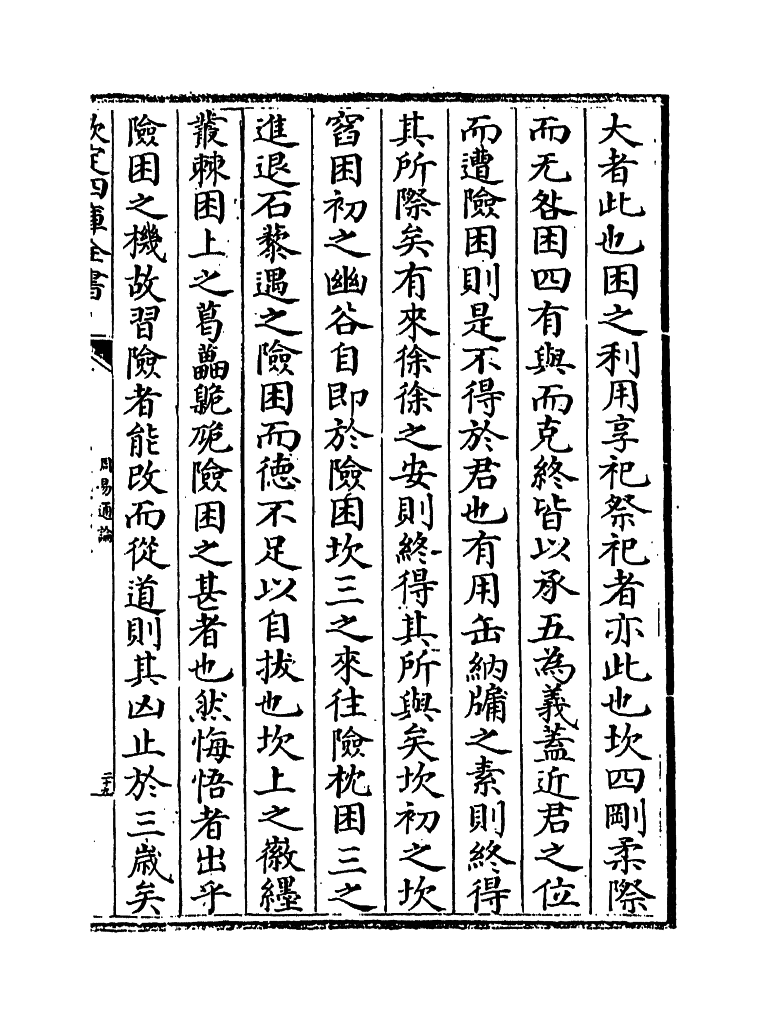 大者此也困之利用享祀祭祀者亦此也坎四剛柔際
而无咎困四有與而克終皆以承五為義蓋近君之位
而遭險困則是不得於君也有用缶納牖之素則終得
其所際矣有來徐徐之安則終得其所與矣坎初之坎
窞困初之幽谷自即於險困坎三之來往險枕困三之
進退石藜遇之險困而德不足以自拔也坎上之徽纆
叢棘困上之葛藟臲卼險困之甚者也然悔悟者出乎
險困之機故習險者能改而從道則其凶止於三歲矣
欽定四庫全書
周易通論
二十五